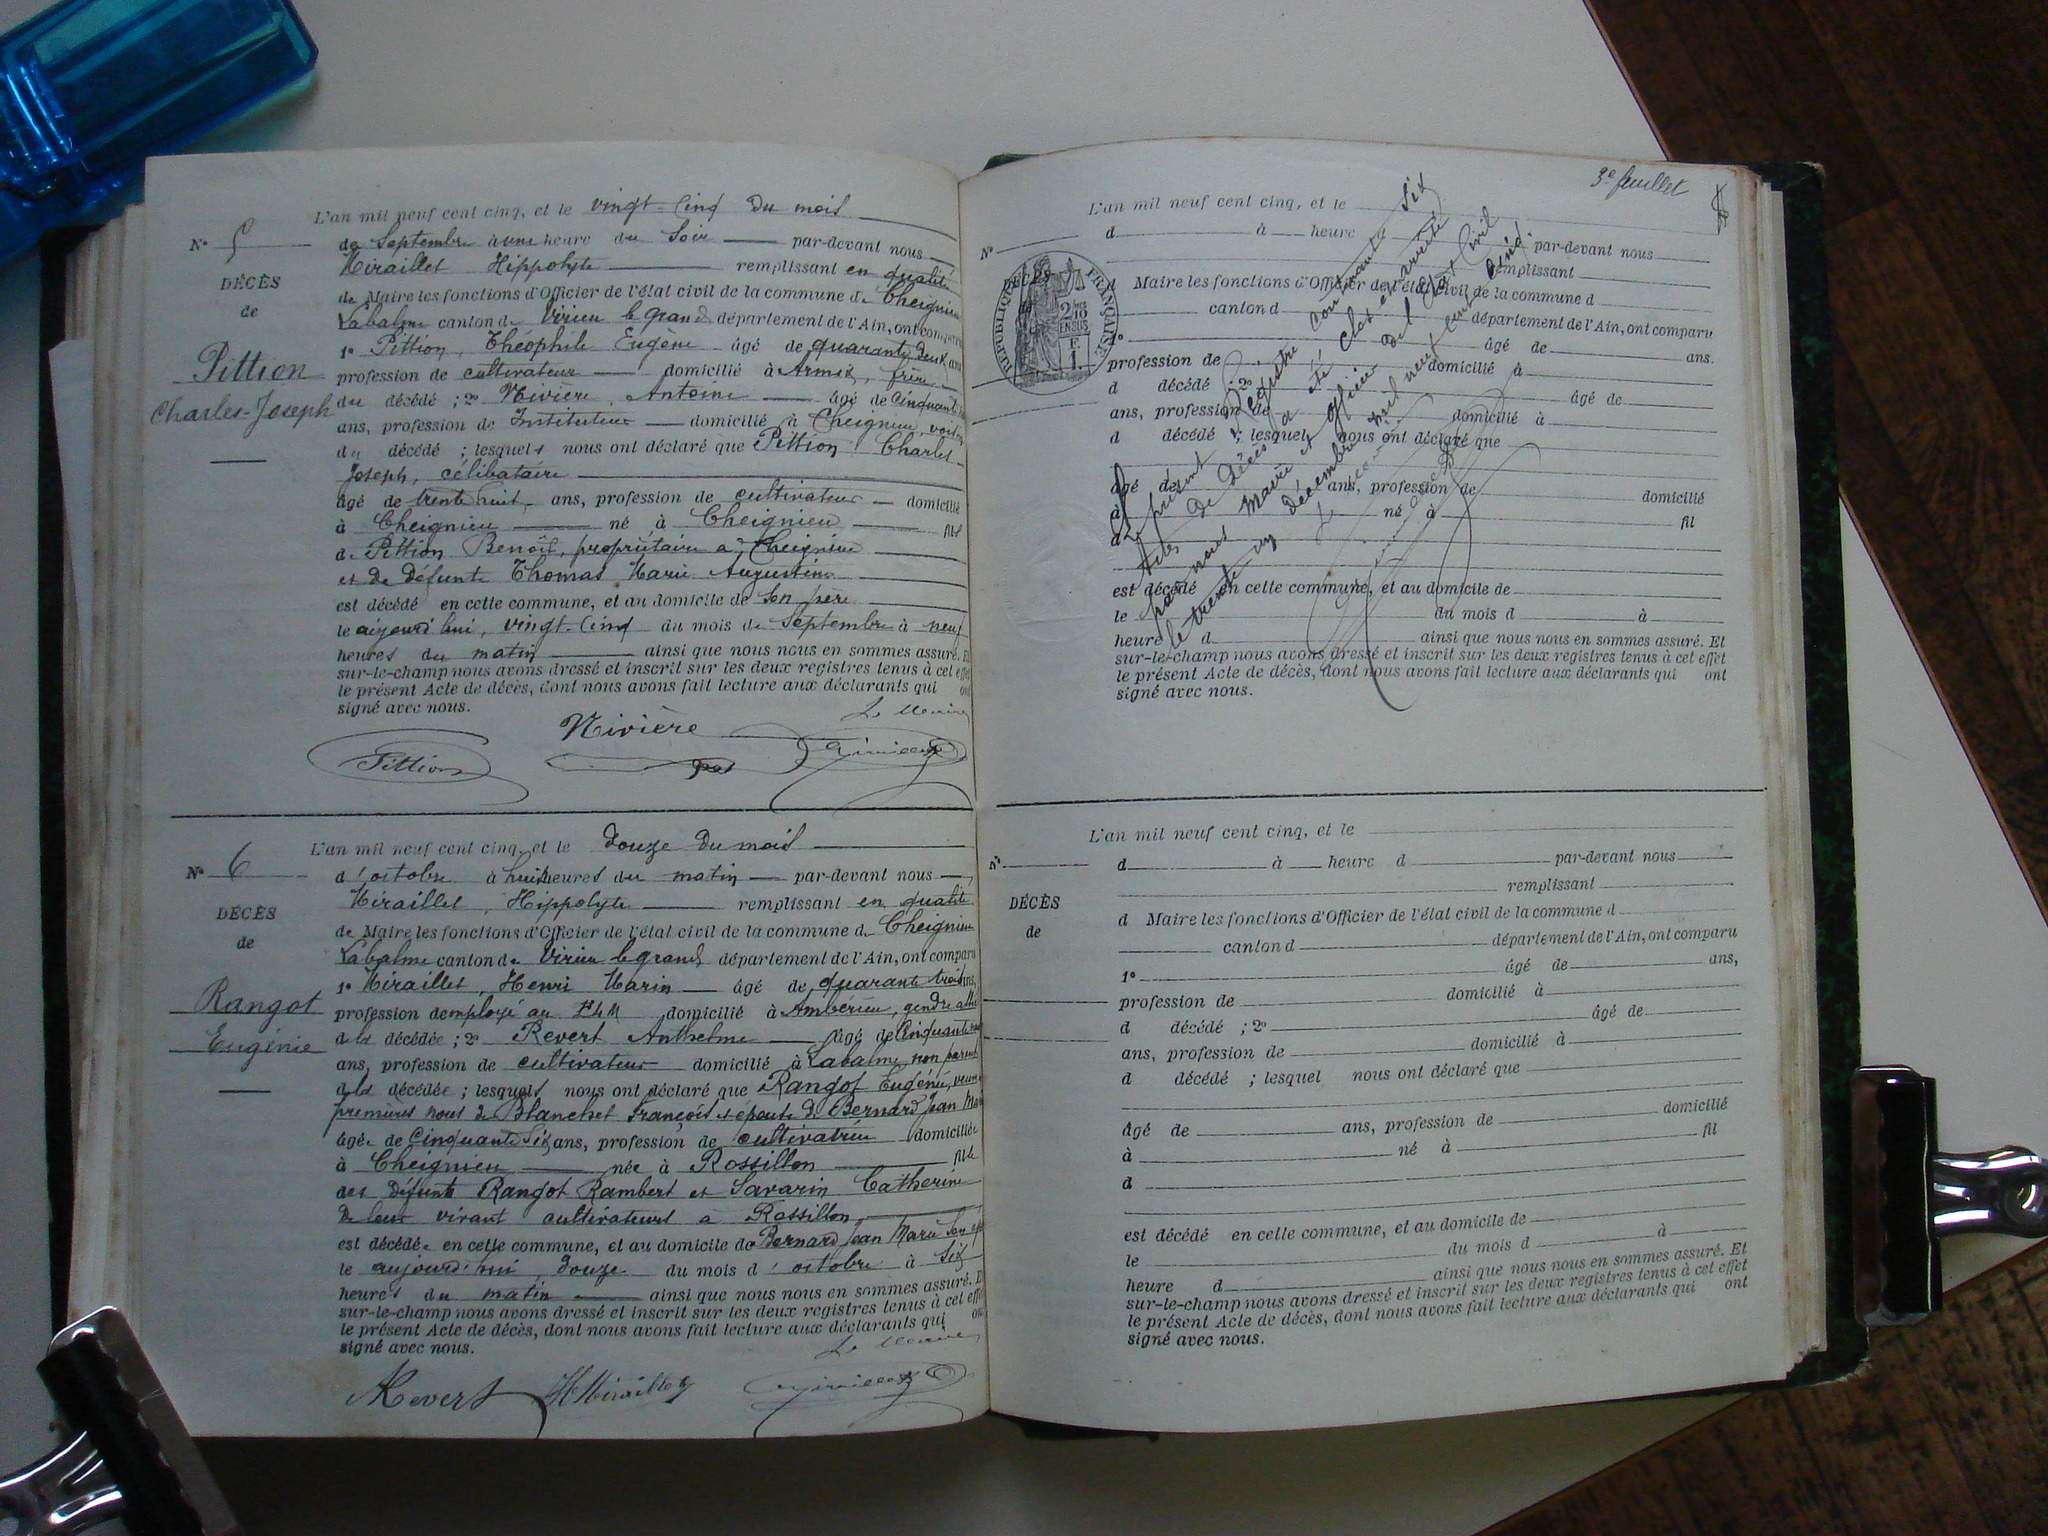 L'an mil neuf cent cinq, et le vingt-cinq du mois
N° 5 de Septembre à une heure du Soir par-devant nous
DÉCÈS
de
Pittion
Charles-Joseph
Miraillet Hippolyte remplissant en qualité
de Maire les fonctions d'Officier de l'état civil de la commune de Cheignieu
Labalme canton de Virieu le grand département de l'Ain, ont comparu
1° Pittion, Théophile Eugène âgé de quarante deux ans
profession de cultivateur domicilié à Armix, frère
du décédé ; 2° Nivière, Antoine âgé de cinquante
ans, profession de Instituteur domicilié à Cheignieu, voisin
du décédé ; lesquels nous ont déclaré que Pittion Charles
Joseph, célibataire
âgé de trente huit ans, profession de cultivateur domicilié
à Cheignieu né à Cheignieu fils
de Pittion Benoît, propriétaire à Cheignieu
et de défunte Thomas Marie Augustine
est décédé en cette commune, et au domicile de son père
le aujourd'hui, vingt-cinq du mois de Septembre à neuf
heures du matin ainsi que nous nous en sommes assuré. Et
sur-le-champ nous avons dressé et inscrit sur les deux registres tenus à cet effet
le présent Acte de décès, dont nous avons fait lecture aux déclarants qui ont
signé avec nous.
Le Maire
Nivière
Pittion
L'an mil neuf cent cinq, et le douze du mois
N° 6 d'octobre à huit heures du matin par-devant nous
DÉCÈS
de
Rangot
Eugénie
Miraillet, Hippolyte remplissant en qualité
de Maire les fonctions d'Officier de l'état civil de la commune de Cheignieu
Labalme canton de Virieu le grand département de l'Ain, ont comparu
1° Miraillet, Henri Marin âgé de quarante trois ans,
profession d'employé au domicilié à Ambérieu, gendre allié
de la décédée ; 2° Revert Anthelme âgé de cinquante
ans, profession de cultivateur domicilié à Labalme non parent
de la décédée ; lesquels nous ont déclaré que Rangot Eugénie, veuve
premières noces de Blanchet François et épouse de Bernard Jean Marie
âgée de cinquante six ans, profession de cultivatrice domiciliée
à Cheignieu née à Rossillon fille
des défunts Rangot Rambert et Savarin Catherine
de leur vivant cultivateurs à Rossillon
est décédée en cette commune, et au domicile de Bernard Jean Marie son
le aujourd'hui, douze du mois d'octobre à six
heures du matin ainsi que nous nous en sommes assuré. Et
sur-le-champ nous avons dressé et inscrit sur les deux registres tenus à cet effet
le présent Acte de décès, dont nous avons fait lecture aux déclarants qui ont
signé avec nous.
Le Maire
Revert H Miraillet
3e feuillet
L'an mil neuf cent cinq, et le
N°
d à heure d par-devant nous
remplissant
d Maire les fonctions d'Officier de l'état civil de la commune d
canton d département de l'Ain, ont comparu
1° âgé de ans.
profession de domicilié à
d décédé ; 2° âgé de
ans, profession de domicilié à
d décédé ; lesquel nous ont déclaré que
âgé de ans, profession de domicilié
à né à fil
d
est décédé en cette commune, et au domicile de
le du mois d à
heure d ainsi que nous nous en sommes assuré. Et
sur-le-champ nous avons dressé et inscrit sur les deux registres tenus à cet effet
le présent Acte de décès, dont nous avons fait lecture aux déclarants qui ont
signé avec nous.
DÉCÈS
RÉPUBLIQUE FRANÇAISE
2/10 EN SUS
F 1.
Le présent Registre contenant Six
Actes de Décès a été clos et arrêté
par nous Maire et officier de l'Etat Civil
le trente un décembre mil neuf cent cinq.
L'an mil neuf cent cinq, et le
N°
DÉCÈS
de
d à heure d par-devant nous
remplissant
d Maire les fonctions d'Officier de l'état civil de la commune d
canton d département de l'Ain, ont comparu
1° âgé de ans,
profession de domicilié à
d décédé ; 2° âgé de
ans, profession de domicilié à
d décédé ; lesquel nous ont déclaré que
âgé de ans, profession de domicilié
à né à fil
d
est décédé en cette commune, et au domicile de
le du mois d à
heure d ainsi que nous nous en sommes assuré. Et
sur-le-champ nous avons dressé et inscrit sur les deux registres tenus à cet effet
le présent Acte de décès, dont nous avons fait lecture aux déclarants qui ont
signé avec nous.